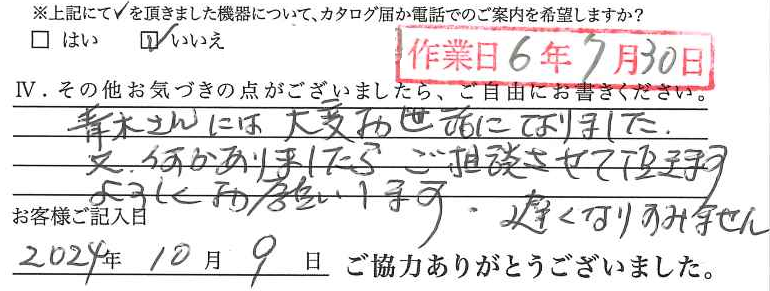 ※上記にて✓を頂きました機器について、カタログ届か電話でのご案内を希望しますか？
□ はい ☑ いいえ
作業日 6年 7月30日
Ⅳ．その他お気づきの点がございましたら、ご自由にお書きください。
青木さんには 大変お世話になりました.
又、何かありましたら ご相談させて頂きます
よろしくお願いします . 遅くなりすみません
お客様ご記入日
2024年 10月 9日 ご協力ありがとうございました。